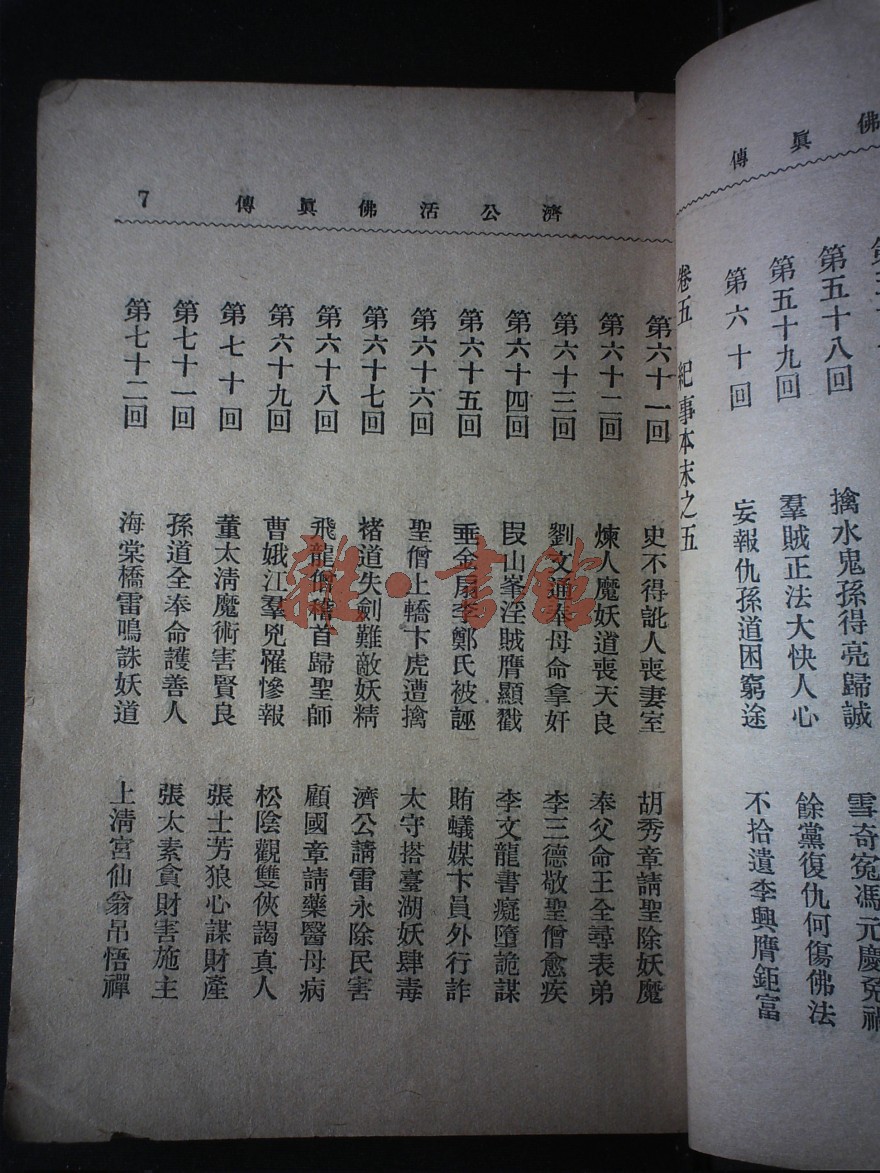 佛眞傳
第五十八回 擒水鬼孫得亮歸誠 雪奇冤馮元慶免禍
第五十九回 羣賊正法大快人心 餘黨復仇何傷佛法
第六十回 妄報仇孫道困窮途 不拾遺李興膺鉅富
卷五 紀事本末之五
濟公活佛眞傳 7
第六十一回 史不得訛人喪妻室 胡秀章請聖除妖魔
第六十二回 煉人魔妖道喪天良 奉父命王全尋表弟
第六十三回 劉文通奉母命拿奸 李三德敬聖僧愈疾
第六十四回 叚山峯淫賊膺顯戳 李文龍書癡墮詭謀
第六十五回 垂金扇李鄭氏被誣 賄蟻媒卞員外行詐
第六十六回 聖僧上轎卞虎遭擒 太守搭臺湖妖肆毒
第六十七回 褚道失劍難敵妖精 濟公請雷永除民害
第六十八回 飛龍僧稽首歸聖師 顧國章請藥醫母病
第六十九回 曹娥江羣兇罹慘報 松陰觀雙俠謁真人
第七十回 董太淸魔術害賢良 張士芳狼心謀財產
第七十一回 孫道全奉命護善人 張太素貪財害施主
第七十二回 海棠橋雷鳴誅妖道 上淸宮仙翁吊悟禪
雜·書館